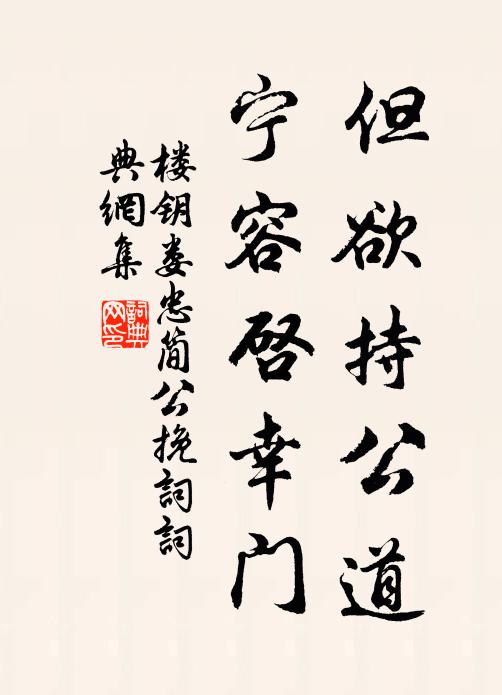 但欲持公道
宁容启幸门
楼钥娄忠简公挽詞詞
典網集
詞典
网印